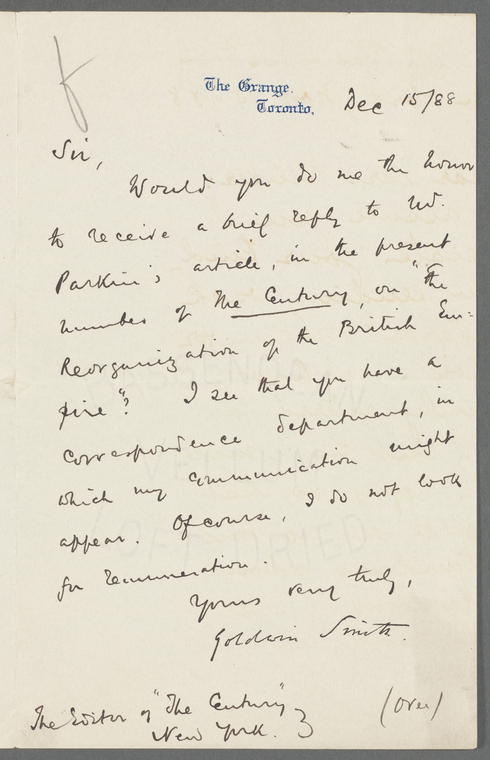 The Grange.
Toronto.
Dec 15/88
Sir,
Would you do me the honor
to receive a brief reply to Mr.
Parkin's article, in the present
number of The Century, on "The
Reorganization of the British Em-
pire"? I see that you have a
correspondence department, in
which my communication might
appear. Of course, I do not look
for remuneration.
Yours very truly,
Goldwin Smith.
The Editor of "The Century"
New York.
(Over)